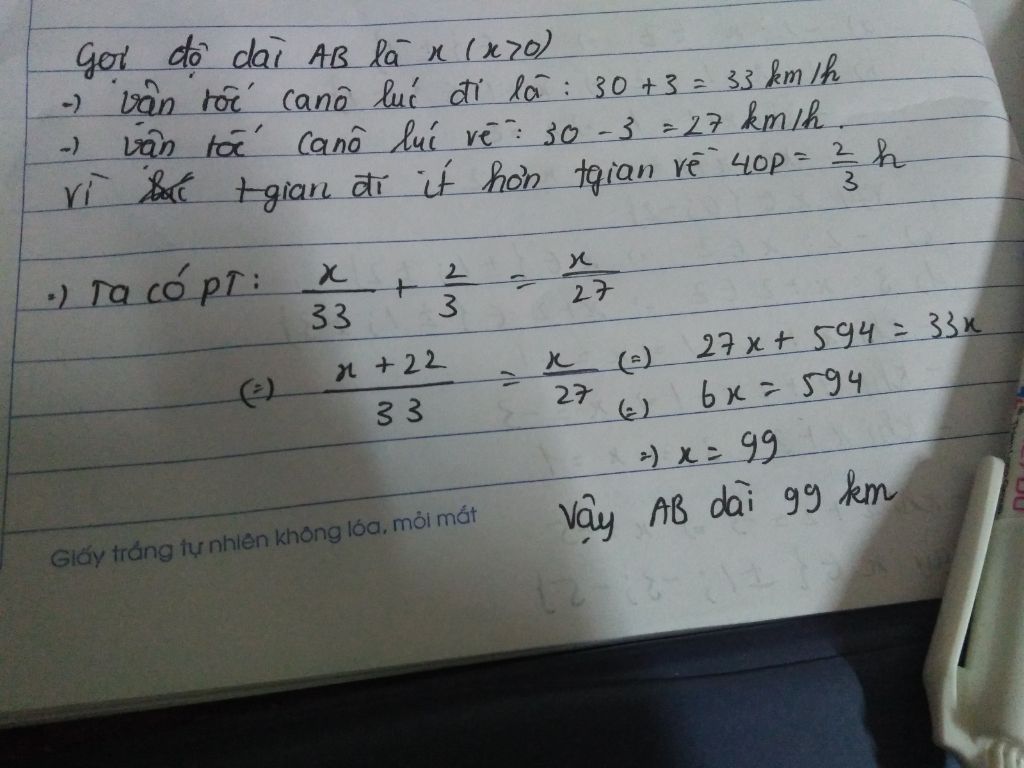 Gọi độ dài AB là x (x>0)
→ vận tốc canô lúc đi là: 30 + 3 = 33 km/h
→ vận tốc canô lúc về: 30 - 3 = 27 km/h.
Vì tgian đi ít hơn tgian về 40p = 2/3 h
=) Ta có PT: x/33 + 2/3 = x/27
(=) (x + 22)/33 = x/27 (=) 27x + 594 = 33x
(=) 6x = 594
=) x = 99
Vậy AB dài 99 km
Giấy trắng tự nhiên không lóa, mỏi mắt